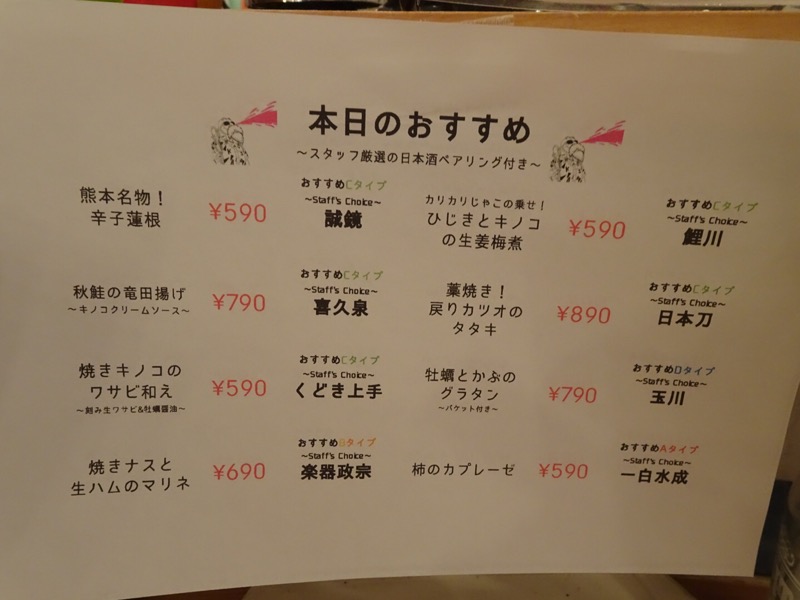 本日のおすすめ
～スタッフ厳選の日本酒ペアリング付き～
熊本名物！
辛子蓮根
¥590
おすすめCタイプ
～Staff's Choice～
誠鏡
カリカリじゃこの乗せ！
ひじきとキノコ
の生姜梅煮
¥590
おすすめCタイプ
～Staff's Choice～
鯉川
秋鮭の竜田揚げ
～キノコクリームソース～
¥790
おすすめCタイプ
～Staff's Choice～
喜久泉
藁焼き！
戻りカツオの
タタキ
¥890
おすすめCタイプ
～Staff's Choice～
日本刀
焼きキノコの
ワサビ和え
～刻み生ワサビ&牡蠣醤油～
¥590
おすすめCタイプ
～Staff's Choice～
くどき上手
牡蠣とかぶの
グラタン
～バケット付き～
¥790
おすすめDタイプ
～Staff's Choice～
玉川
焼きナスと
生ハムのマリネ
¥690
おすすめBタイプ
～Staff's Choice～
楽器政宗
柿のカプレーゼ
¥590
おすすめAタイプ
～Staff's Choice～
一白水成